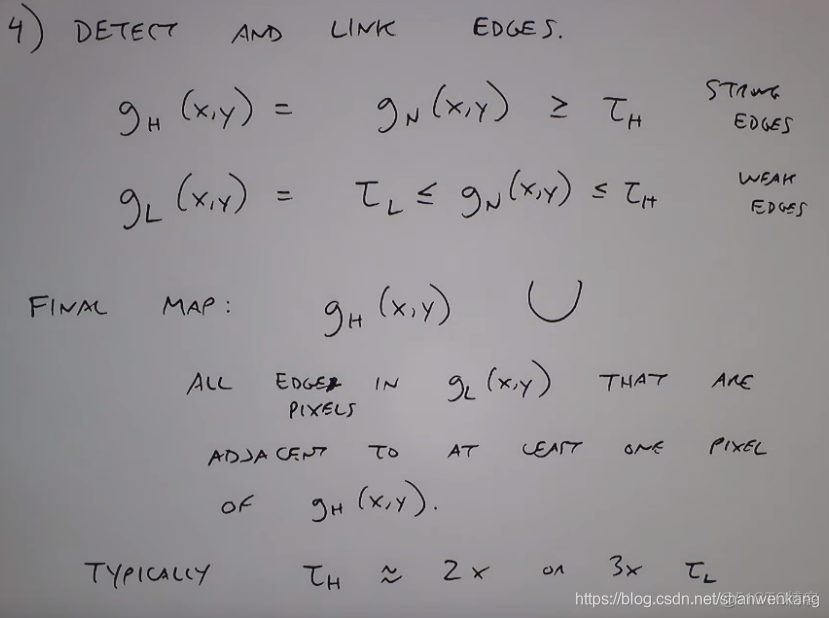 4) DETECT AND LINK EDGES.
g_H (x,y) = g_N (x,y) ≥ τ_H STRONG EDGES
g_L (x,y) = τ_L ≤ g_N (x,y) ≤ τ_H WEAK EDGES
FINAL MAP: g_H (x,y) ∪
ALL EDGE PIXELS IN g_L (x,y) THAT ARE
ADJACENT TO AT LEAST ONE PIXEL
OF g_H (x,y).
TYPICALLY τ_H ≈ 2x OR 3x τ_L
https://blog.csdn.net/shanwenkang